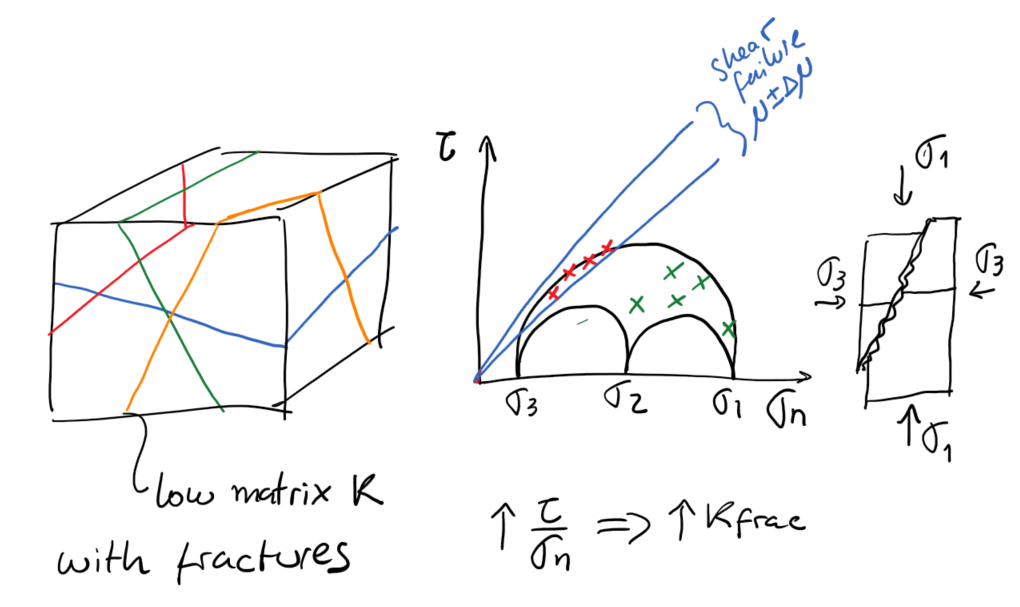 low matrix K
with fractures
τ
shear
failure
μ±Δμ
σ3
σ2
σ1
σn
↑ τ/σn => ↑ Kfrac
σ1
σ3
σ3
σ1